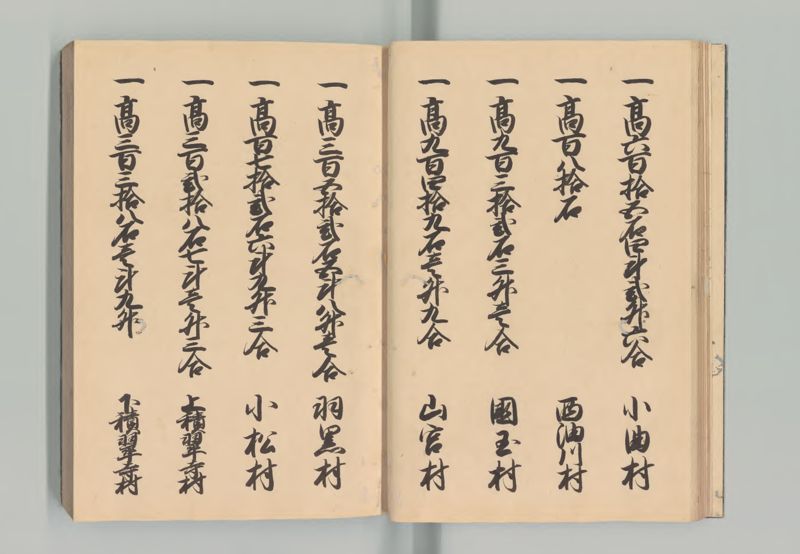 一高六百拾五石四斗弐升六合 小曲村
一高百八拾石 西油川村
一高九百三拾弐石三升壱合 國玉村
一高九百四拾九石壱升九合 山宮村
一高三百五拾弐石五斗八升壱合 羽黒村
一高百七拾弐石六斗九升三合 小松村
一高三百弐拾八石七斗壱升三合 上積翠寺村
一高三百三拾八石壱斗九升 下積翠寺村